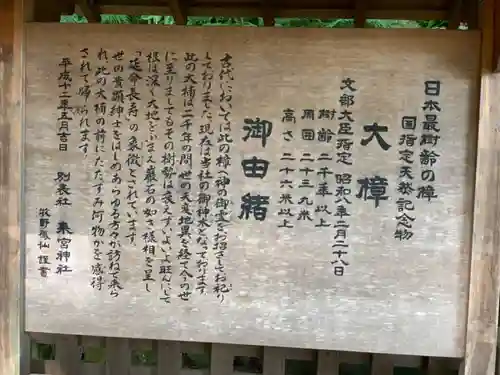 日本最樹齢の樟
国指定天然記念物
大樟
文部大臣指定 昭和八年二月二十八日
樹齢 二千年以上
周囲 二十三、九米
高さ 二十六米以上
御由緒
古代においては此の樟へ神の御霊をお招きしてお祀り
しておりました。現在は当社の御神木となっております。
此の大楠は二千年の間世の天変地異を経て今の世
に至りましてもその樹勢は衰えずいよいよ旺んにして
根は深く大地をふまえ巌石の如き様相を呈し
「延命長寿」の象徴とされています。
世の貴顕紳士をはじめあらゆる方々が訪ねて来ら
れ、此の大楠の前にたたずみ何物かを感得
されて帰られます。
平成十二年五月吉日
別表社 来宮神社
謹書